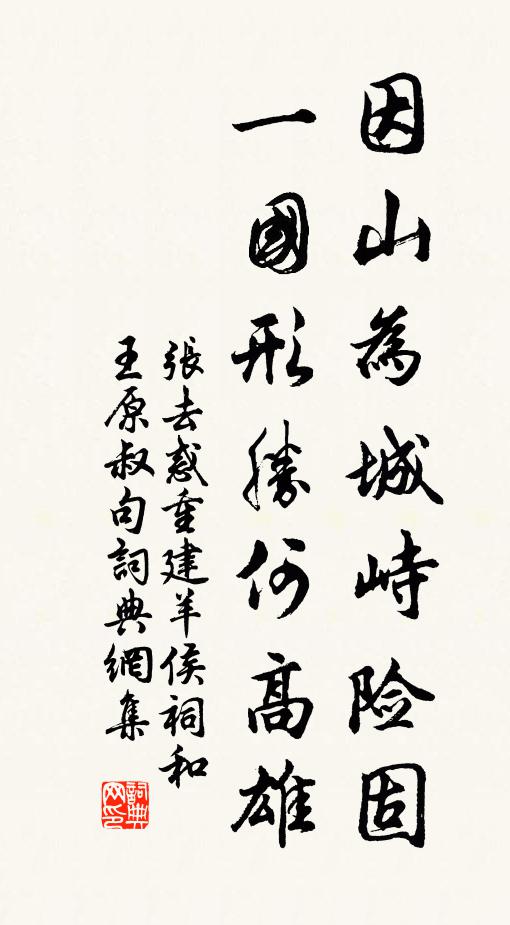 因山為城峙险固
一國形勝何高雄
張去惑重建羊侯祠和
王原叔句詞典網集
詞典
网印